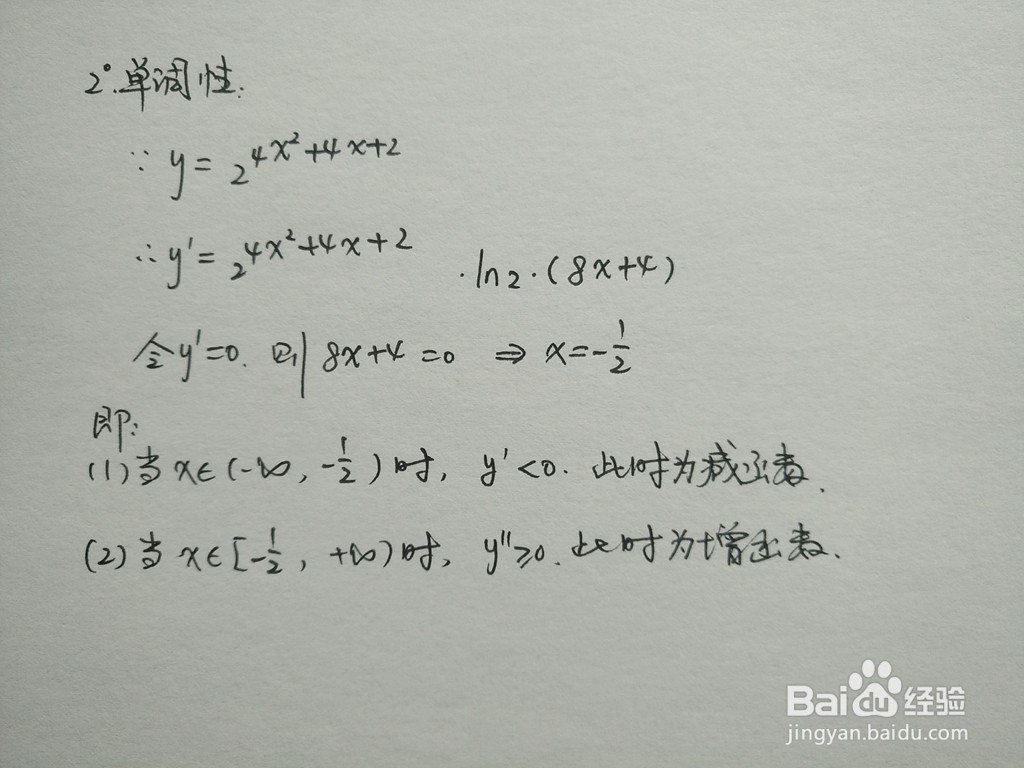 2°.单调性:
∵ y = 2^{4x²+4x+2}
∴ y' = 2^{4x²+4x+2} · ln2 · (8x+4)
令y'=0. 则 8x+4=0 ⇒ x=-1/2
即:
(1) 当 x∈(-∞, -1/2) 时, y'<0. 此时为减函数.
(2) 当 x∈[-1/2, +∞) 时, y''≥0. 此时为增函数.
Baidu经验
jingyan.baidu.com